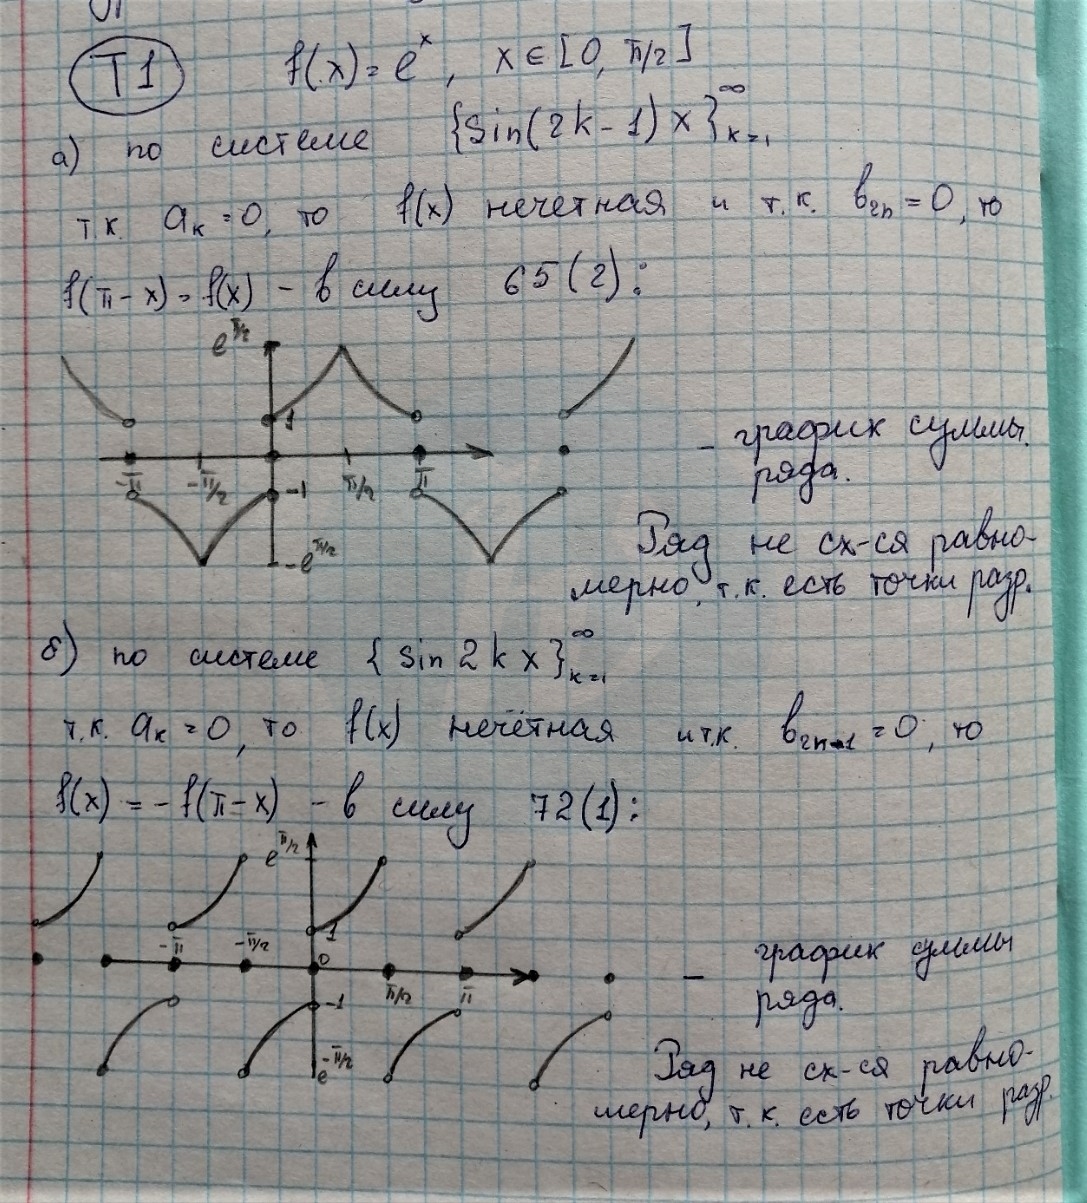 Т1 f(x) = e^x, x ∈ [0, π/2]
а) по системе {sin(2k-1)x}_{k=1}^∞
т.к. a_k = 0, то f(x) нечетная и т.к. b_{2n} = 0, то
f(π-x) = f(x) - в силу 65(2):
e^{π/2}
1
-π -π/2 π/2 π
-1
-e^{π/2}
- график суммы
ряда.
Ряд не сх-ся равно-
мерно, т.к. есть точки разр.
б) по системе {sin 2kx}_{k=1}^∞
т.к. a_k = 0, то f(x) нечётная и т.к. b_{2n-1} = 0, то
f(x) = -f(π-x) - в силу 72(1):
e^{π/2}
1
-π -π/2 0 π/2 π
-1
e^{-π/2}
- график суммы
ряда.
Ряд не сх-ся равно-
мерно, т.к. есть точки разр.